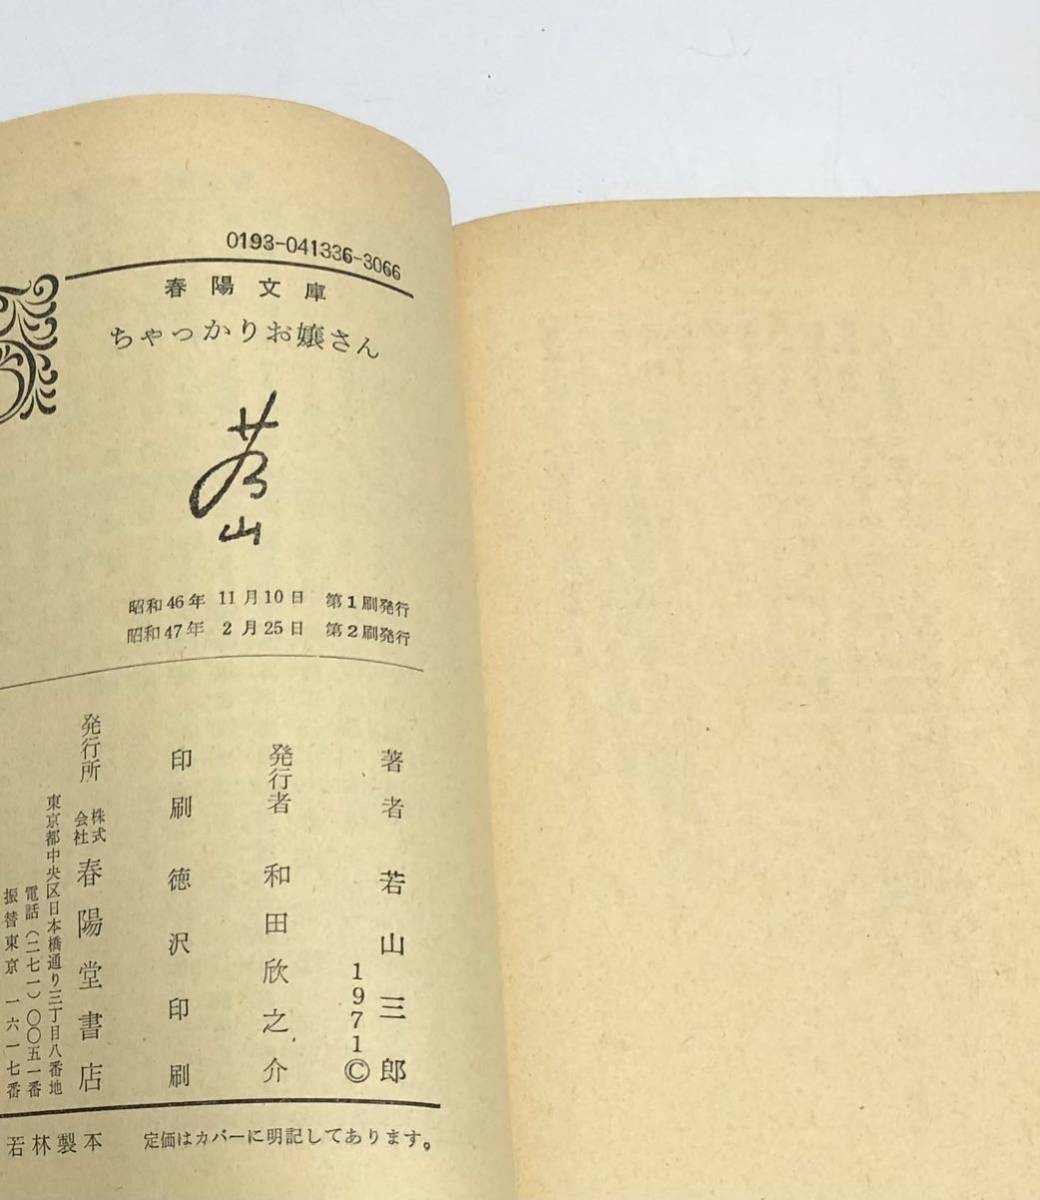 0193-041336-3066
春陽文庫
ちゃっかりお嬢さん
若山
昭和46年 11月10日 第1刷発行
昭和47年 2月25日 第2刷発行
著者 若山三郎
1971©
発行者 和田欣之介
印刷 徳沢印刷
発行所 株式会社 春陽堂書店
東京都中央区日本橋通り三丁目八番地
電話(二七一)〇〇五一番
振替東京一六一七番
若林製本 定価はカバーに明記してあります。